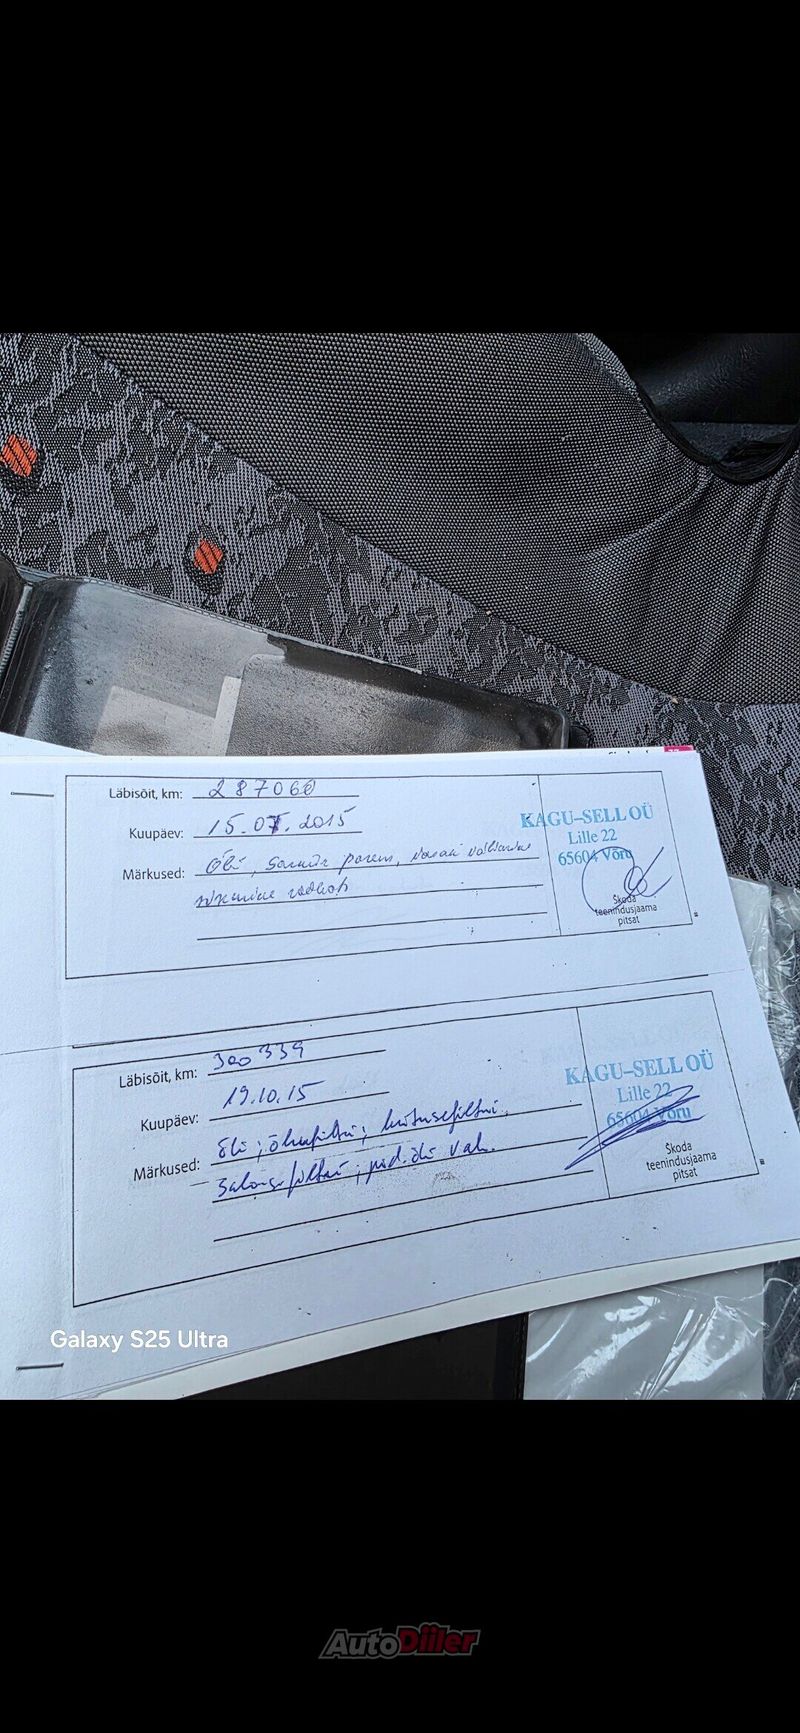 Läbisõit, km: 287060
Kuupäev: 15.07.2015
Märkused: Õli, parem, vasak
KAGU-SELL OÜ
Lille 22
65604 Võru
Škoda
teenindusjaama
pitsat
Läbisõit, km: 300339
Kuupäev: 19.10.15
Märkused: Õli; õhufiltri; kütusefiltri,
Salongifiltri; pid. õli vah.
KAGU-SELL OÜ
Lille 22
65604 Võru
Škoda
teenindusjaama
pitsat
Galaxy S25 Ultra
AutoDiiler